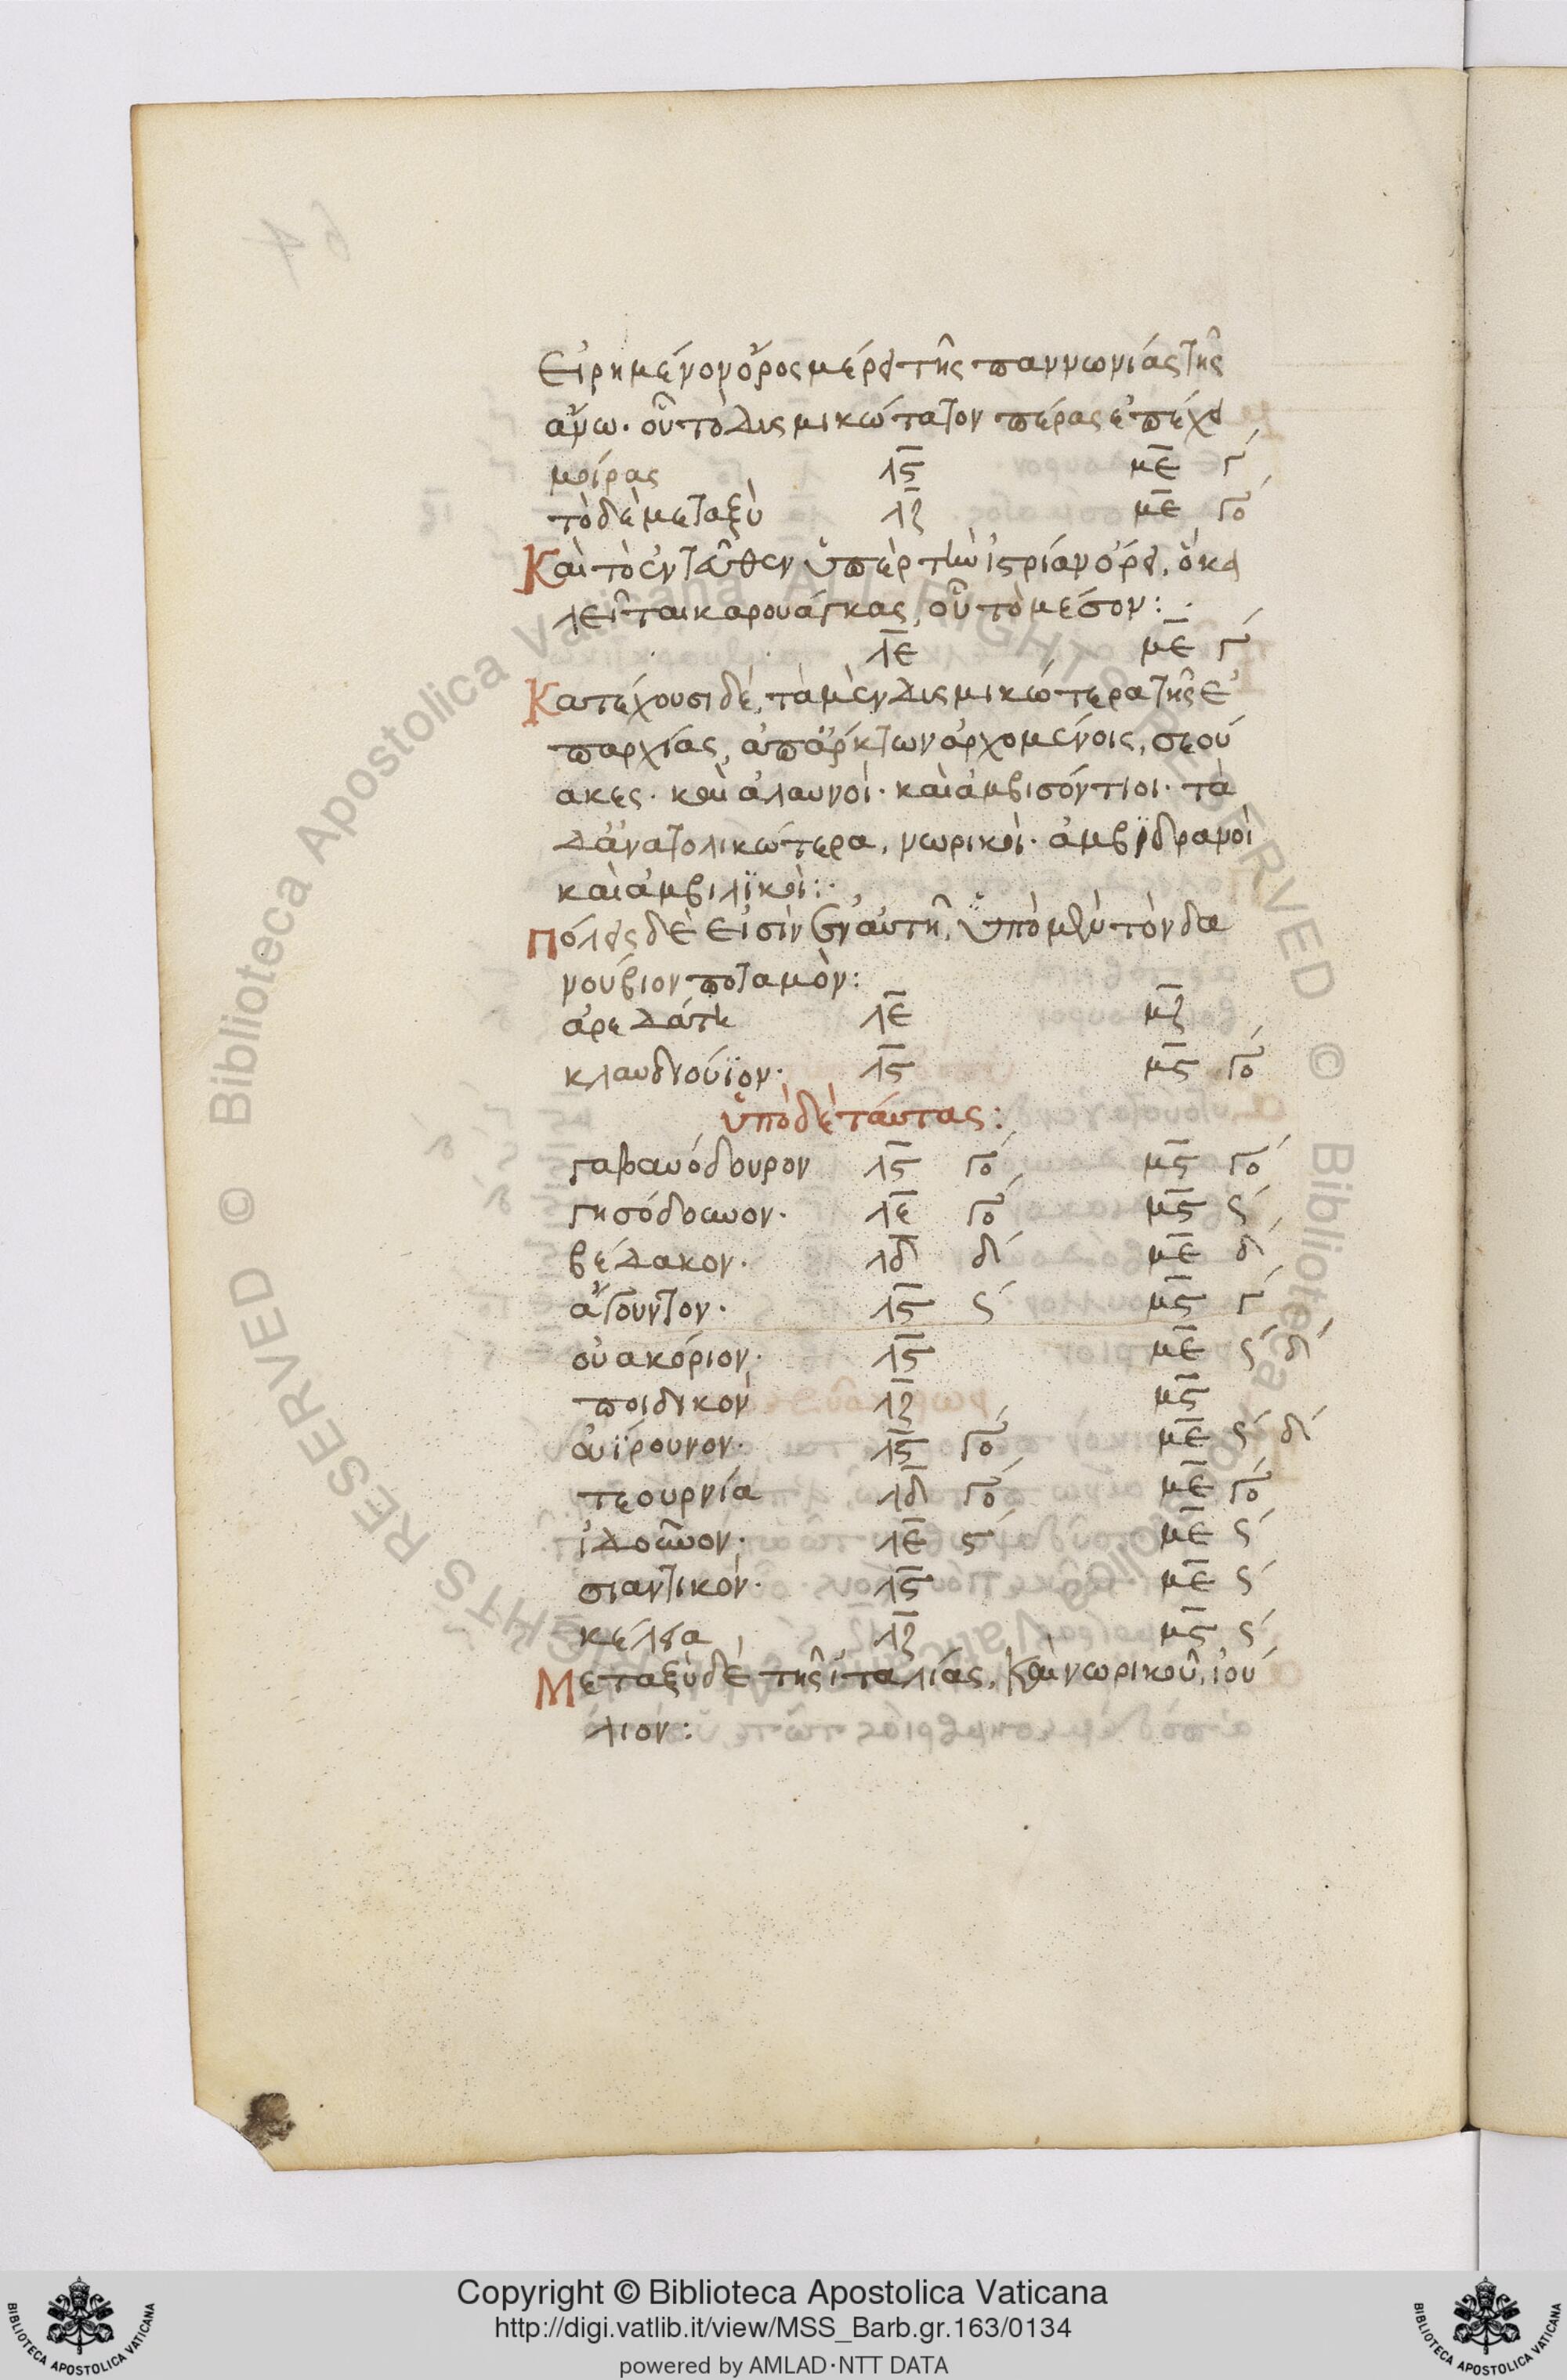 εἰρημένον ὄρος μέρει τῆς παννωνίας τῆς
ἄνω. οὗ τὸ δυσμικώτατον πέρας ἐπέχει
μοίρας λς με γ
τὸ δὲ μεταξὺ λζ με γο
Καὶ τὸ ἐντεῦθεν ὑπὲρ τὴν ἰστρίαν ὄρει, ὃ κα
λεῖται καρουάγκας, οὗ τὸ μέσον:
λε με γ
Κατέχουσι δὲ, τὰ μὲν δυσμικώτερα τῆς ἐ
παρχίας, ἀπ' ἄρκτων ἀρχομένοις, σεού
ακες. καὶ ἀλαυνοὶ. καὶ ἀμβισόντιοι. τὰ
δ' ἀνατολικώτερα, νωρικοὶ. ἀμβϊδρανοὶ
καὶ ἀμβιλϊκοὶ:
Πόλεις δὲ εἰσὶν ἐν αὐτῆ, ὑπὸ μὲν τὸν δα
νούβιον ποταμὸν:
ἀρεδάτη λε μζ
κλαυδιούϊον. λς μς γο
ὑπὸ δὲ ταύτας:
γαβανόδουρον λς γο μς γο
γησόδουνον. λε γο μς ς
βέδακον. λδ δ με δ
ἀγουντον. λς ς μς γ
οὐακόριον. λς με ς δ
ποιδικὸν λζ μς
ὀυϊρουνον. λς γο με ς δ
τεουρνία λδ γο με γο
ἰδουνον. λε ς με ς
σιαντικὸν. λς με ς
κέλεα λζ μς ς
Μεταξὺ δὲ τῆς ἰταλίας, καὶ νωρικοῦ, ἰού
λιον:
Copyright © Biblioteca Apostolica Vaticana
http://digi.vatlib.it/view/MSS_Barb.gr.163/0134
powered by AMLAD·NTT DATA